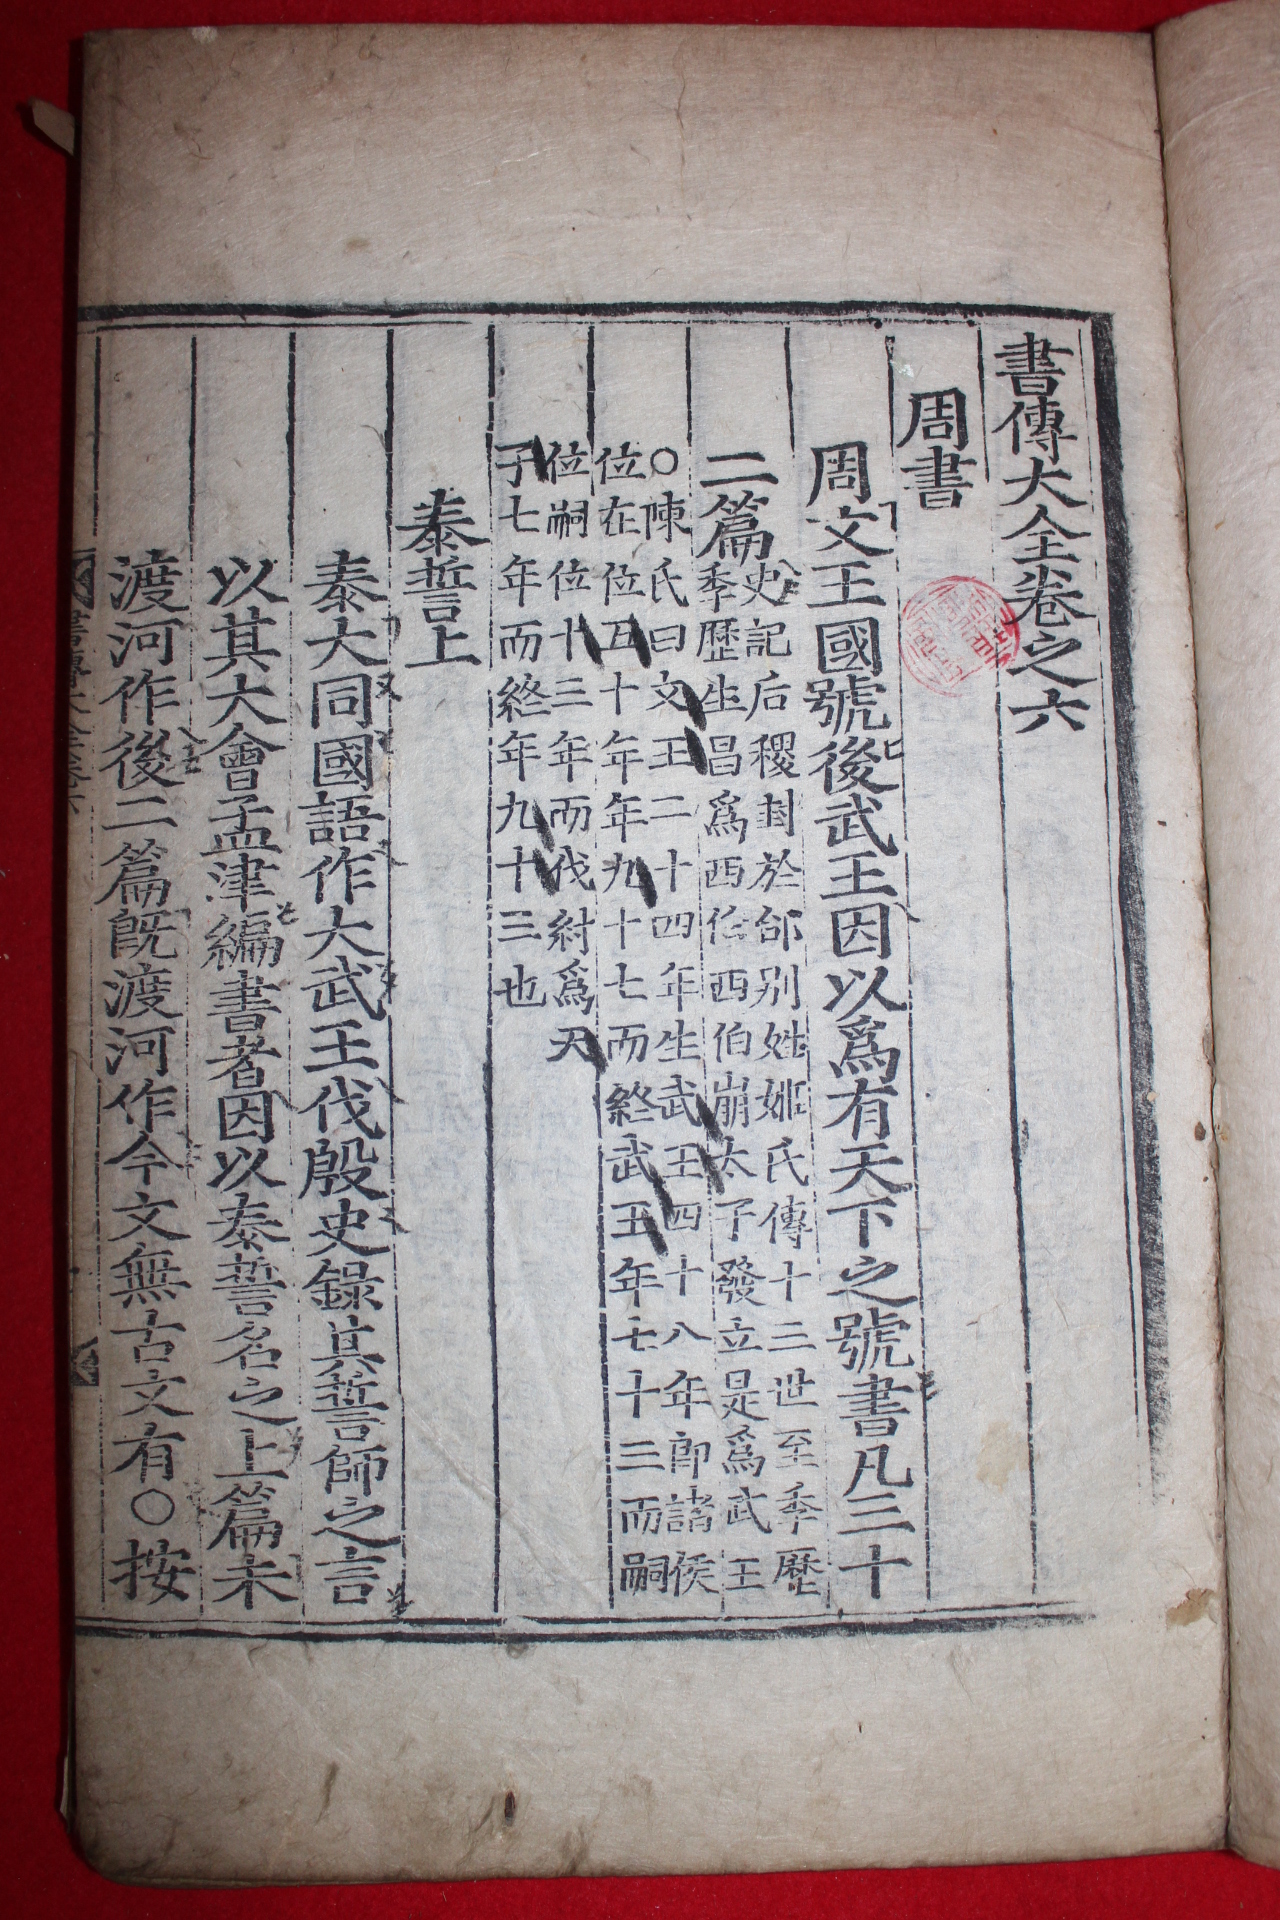 書傳大全卷之六
周書
周文王國號後武王因以爲有天下之號書凡三十
二篇
史記后稷封於邰别姓姬氏傳十三世至季歷
季歷生昌爲西伯西伯崩太子發立是爲武王
○陳氏曰文王二十四年生武王四十八年卽諸侯
位在位五十年年九十七而終武王年七十三而嗣
位嗣位十三年而伐紂爲天
子七年而終年九十三也
泰誓上
泰大同國語作大武王伐殷史錄其誓師之言
以其大會孟津編書者因以泰誓名之上篇未
渡河作後二篇旣渡河作今文無古文有○按